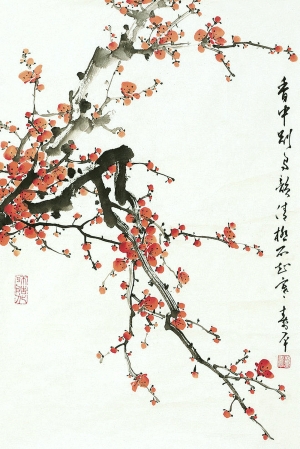 香中别有韵清极不知寒 寿平